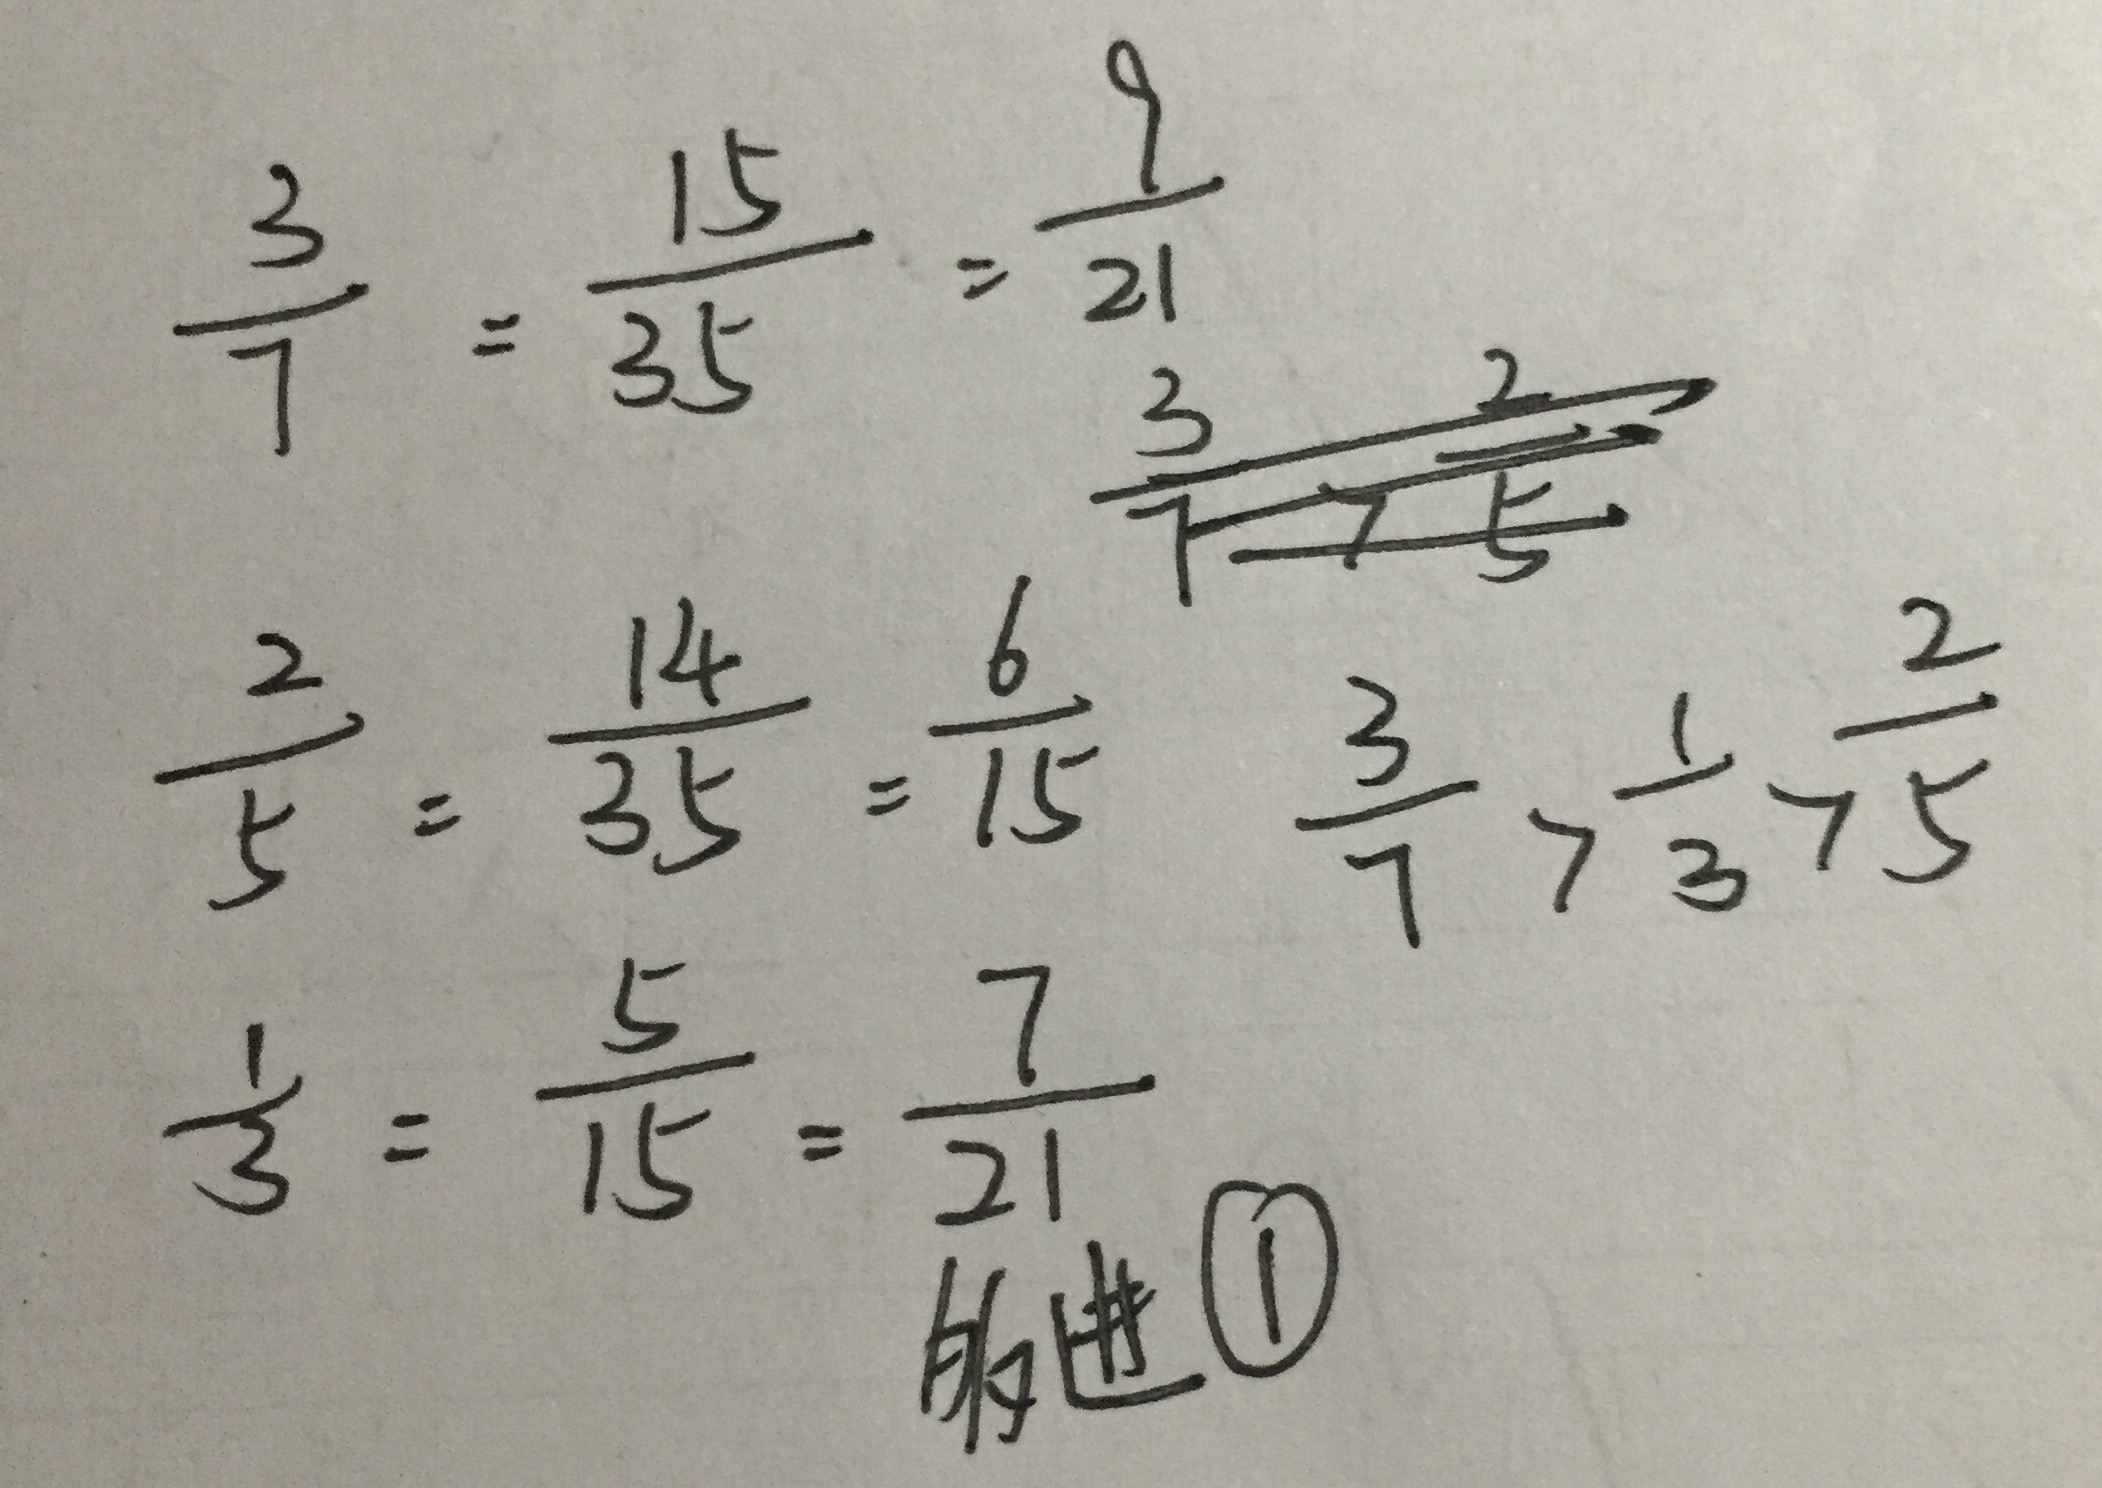 3/7 = 15/35 = 9/21
3/7 > 2/5
2/5 = 14/35 = 6/15
3/7 > 1/3 > 2/5
1/3 = 5/15 = 7/21
①